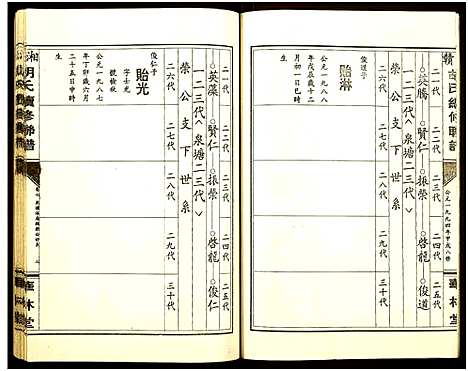 公元一九九四年甲戌八修
華林堂
二一代 二二代 二三代 二四代 二五代
○英騰 ○賢仁 ○振榮 ○啓龍 ○俊道
一二三代︿泉塘二三代﹀
榮公支下世系
二六代 二七代 二八代 二九代 三十代
俊道子
貽淋
公元一九八八
年戊辰歲十二
月初一日巳時
生
二一代 二二代 二三代 二四代 二五代
○英藻 ○賢仁 ○振榮 ○啓龍 ○俊仁
一二三代︿泉塘二三代﹀
榮公支下世系
二六代 二七代 二八代 二九代 三十代
俊仁子
貽光
字士光
號檢秋
公元一九八七
年丁卯歲六月
二十五日申時
生
胡氏續修聯譜
華林堂